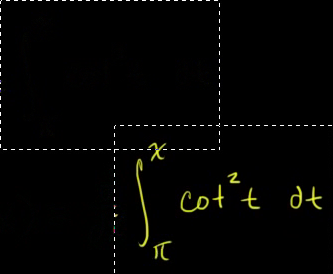 ∫_π^x cot²t dt